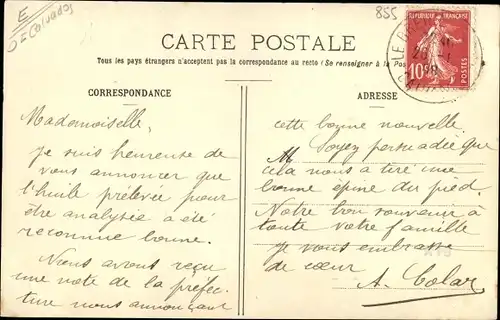 E
O=Calvados
855
CARTE POSTALE
Tous les pays étrangers n'acceptent pas la correspondance au recto (Se renseigner à la Pos
CORRESPONDANCE
ADRESSE
10c
POSTES
Mademoiselle,
Je suis heureuse de
vous annoncer que
l'huile prélevée pour
être analysée a été
reconnue bonne.
Nous avons reçu
une note de la préfec-
ture nous annonçant
cette bonne nouvelle.
M Soyez persuadée que
cela nous a tiré une
bonne épine du pied.
Notre bon souvenir à
toute votre famille
Je vous embrasse
de cœur
A. Colar